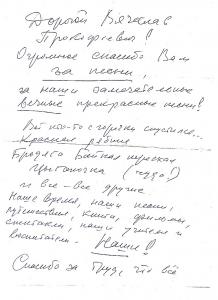 Дорогой Вячеслав
Прокофьевич!
Огромное спасибо Вам
за песни,
за наши замечательные
вечные прекрасные песни!
Вот кто-то с горочки спустился...
Красную рябину
Бродяга Байкал переехал
Цыганочка (чудо!)
и все-все другие
Наше время, наши песни,
путешествия, книги, фильмы,
спектакли, наши учителя и
воспитатели. Наши!
Спасибо за Труд, что всё